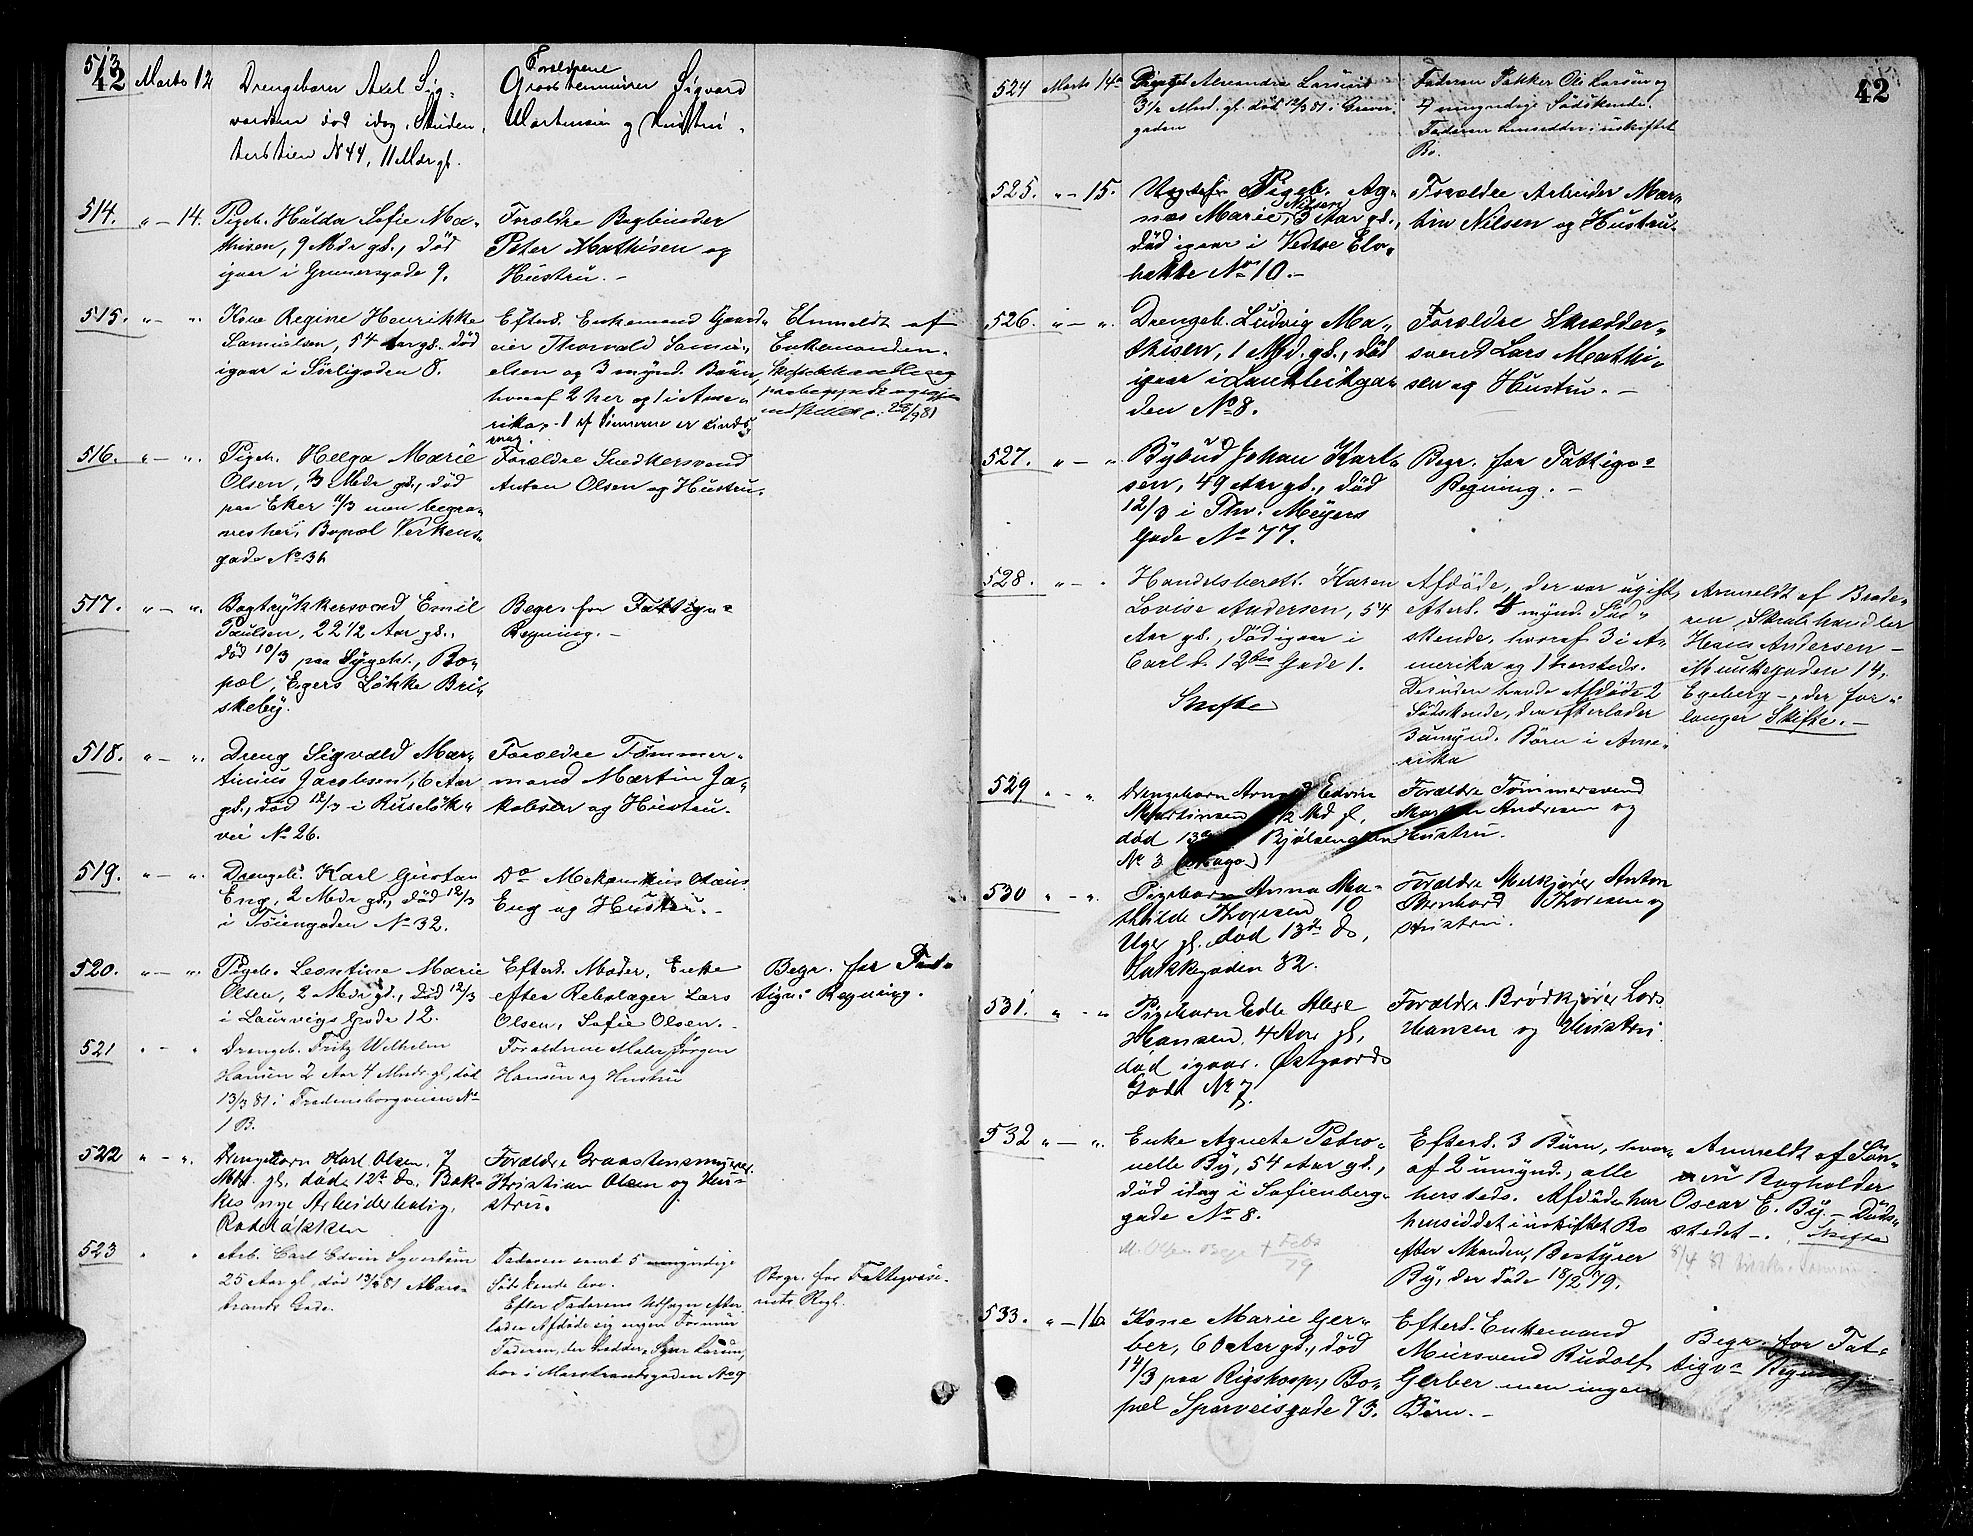 42
513
Marts 12
Drengebarn Axel Sig-
vardsen død idag, Studen-
terstien N 44, 11 Mdr gl.
Forældrene
Graastenmurer Sigvard
Mortensen og Hustru.
514. " — 14.
Pigeb. Hulda Sofie Ma-
thisen, 9 Mdr gl., død
igaar i Grunersgade 9.
Forældre Bogbinder
Peter Mathisen og
Hustru. —
515. " — ".
Kone Regine Henrikke
Samuelsen, 54 Aar gl. død
igaar i Sørligaden 8.
Efterl. Enkemand Gaard-
eier Thorvald Samu-
elsen og 3 mynd. Børn,
hvoraf 2 her og 1 i Ame-
rika. 1 af Sønnerne er sinds-
svag.
Anmeldt af
Enkemanden.
516. " — ".
Pigeb. Helga Marie
Olsen, 3 Mdr gl., død
paa Eker 11/3 men begra-
ves her, Bopæl Verkens-
gade No 36
Forældre Snedkersvend
Anton Olsen og Hustru.
517. " — ".
Bogtrykkersvend Emil
Paulsen, 22 1/2 Aar gl.,
død 10/3 paa Sygeh., Bo-
pæl, Egers Løkke Bri-
skeby.
Begr. for Fattigv.
Regning. —
518. " — ".
Dreng Sigvald Mar-
tinius Jacobsen, 6 Aar
gl., død 12/3 i Ruseløk-
vei No 26.
Forældre Tømmer-
mand Martin Ja-
kobsen og Hustru.
519. " — ".
Drengeb. Karl Gustav
Eng, 2 Mdr gl., død 12/3
i Tøiengaden No 32.
Do Mekanikus Olaus
Eng og Hustru. —
520. " — ".
Pigeb. Leontine Marie
Olsen, 2 Mdr gl., død 12/3
i Laurvigs Gade 12.
Efterl. Moder, Enke
efter Rebslager Lars
Olsen, Sofie Olsen. —
Begr. for Fat-
tigv. Regning.
521 " — "
Drengeb. Fritz Wilhelm
Hansen 2 Aar 4 Mndr gl, død
13/3 81 i Fredensborgveien No
1 B.
Forældrene Maler Jørgen
Hansen og Hustru
522 " — ".
Drengebarn Karl Olsen. 7
Mdr. gl. død 12te ds, Bak-
kes nye Arbeiderbolig,
Rodeløkken
Forældre Graastensmurer
Kristian Olsen og Hu-
stru.
523 " "
Arb. Carl Edvin Syvertsen
25 Aar gl, død 13/3 81 Mars-
trands Gade.
Faderen samt 5 umyndige
Sødskende leve.
Efter Faderens Udsagn efter
lader Afdøde sig ingen Formue
Faderen, der hedder Syver Larsen,
bor i Marstrandsgaden No 9
Begr. for Fattigvæse-
nets Regn.
42
524 Marts 14
Alexandra Larsine
3 1/2 Mnd. gl. død 12/3 81 i Gruner-
gaden
Faderen Pakker Ole Larsen og
4 umyndige Sødskende.
Faderen hensidder i uskiftet
Bo.
525. " — 15.
Pigeb. Ag-
nes Marie Nilsen, 3 Aar gl.,
død igaar i Vestre Elv-
bakke No 10. —
Forældre Arbeider Mar-
tin Nilsen og Hustru.
526. " — ".
Drengeb. Ludvig Ma-
thisen, 1 Md. gl., død
igaar i Lakkegaar
den No 8.
Forældre Skrædder-
svend Lars Mathi-
sen og Hustru. —
527. " — "
Bybud Johan Karl-
sen, 49 Aar gl., død
12/3 i Thv. Meyers
Gade No 77.
Begr. for Fattigv.
Regning. —
528. " — "
Handelsberett. Karen
Lovise Andersen, 54
Aar gl., død igaar i
Carl d. 12tes Gade 1.
Skifte
Afdøde, der var ugift,
efterl. 4 mynd. Sød-
skende, hvoraf 3 i A-
merika og 1 hersteds.
Desuden havde Afdøde 2
Sødskende, der efterlader
3 umynd. Børn i Ame-
rika
Anmeldt af Brode-
ren, Skrabhandler
Hans Andersen —
Munkegaden 14,
Egeberg —, der for-
langer Skifte. —
529 " — "
Drengebarn Edvin
Martinsen Md gl,
død 13de Bjølsengaden
No 3 (Sagen)
Forældre Tømmersvend
Andresen og
Hustru.
530 " — ".
Pigebarn Anna Ma-
thilde Thoresen 10
Uger gl. død 13de ds,
Lakkegaden 32.
Forældre Melkjører Anton
Bernhard Thoresen og
Hustru.
531. " — "
Pigebarn Edle
Hansen, 4 Aar gl,
død igaar. Østgaards
Gade No 7.
Forældre Brødkjører Lars
Hansen og Hustru.
532 " — ".
Enke Agnete Petro-
nelle By, 54 Aar gl.,
død idag i Sofienberg-
gade No 8.
M. Olsen Begr + Febr
79
Efterl. 3 Børn, hvor-
af 2 umynd., alle
hersteds. Afdøde har
hensiddet i uskiftet Bo
efter Manden, Bestyrer
By, der døde 18/2 79.
Anmeldt af Søn-
nen Bogholder
Oscar E. By. — Døds-
stedet —. Skifte
5/4 81
533. " — 16
Kone Marie Ger-
ber, 60 Aar gl., død
14/3 paa Rigshosp., Bo-
pæl Sporveisgade 73.
Efterl. Enkemand
Mursvend Rudolf
Gerber men ingen
Børn. —
Begr. for Fat-
tigv. Regning.